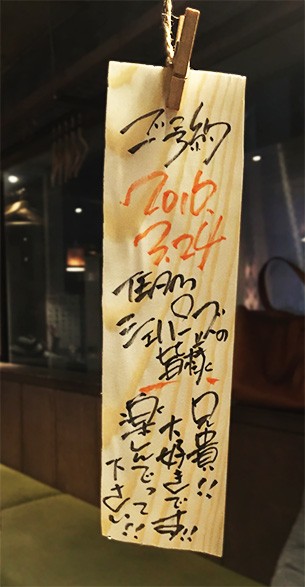 ご予約
2016.
3.24
TEAM
シェパーズの
皆様
兄貴!!
大好きです!!
楽しんでって
下さい!!